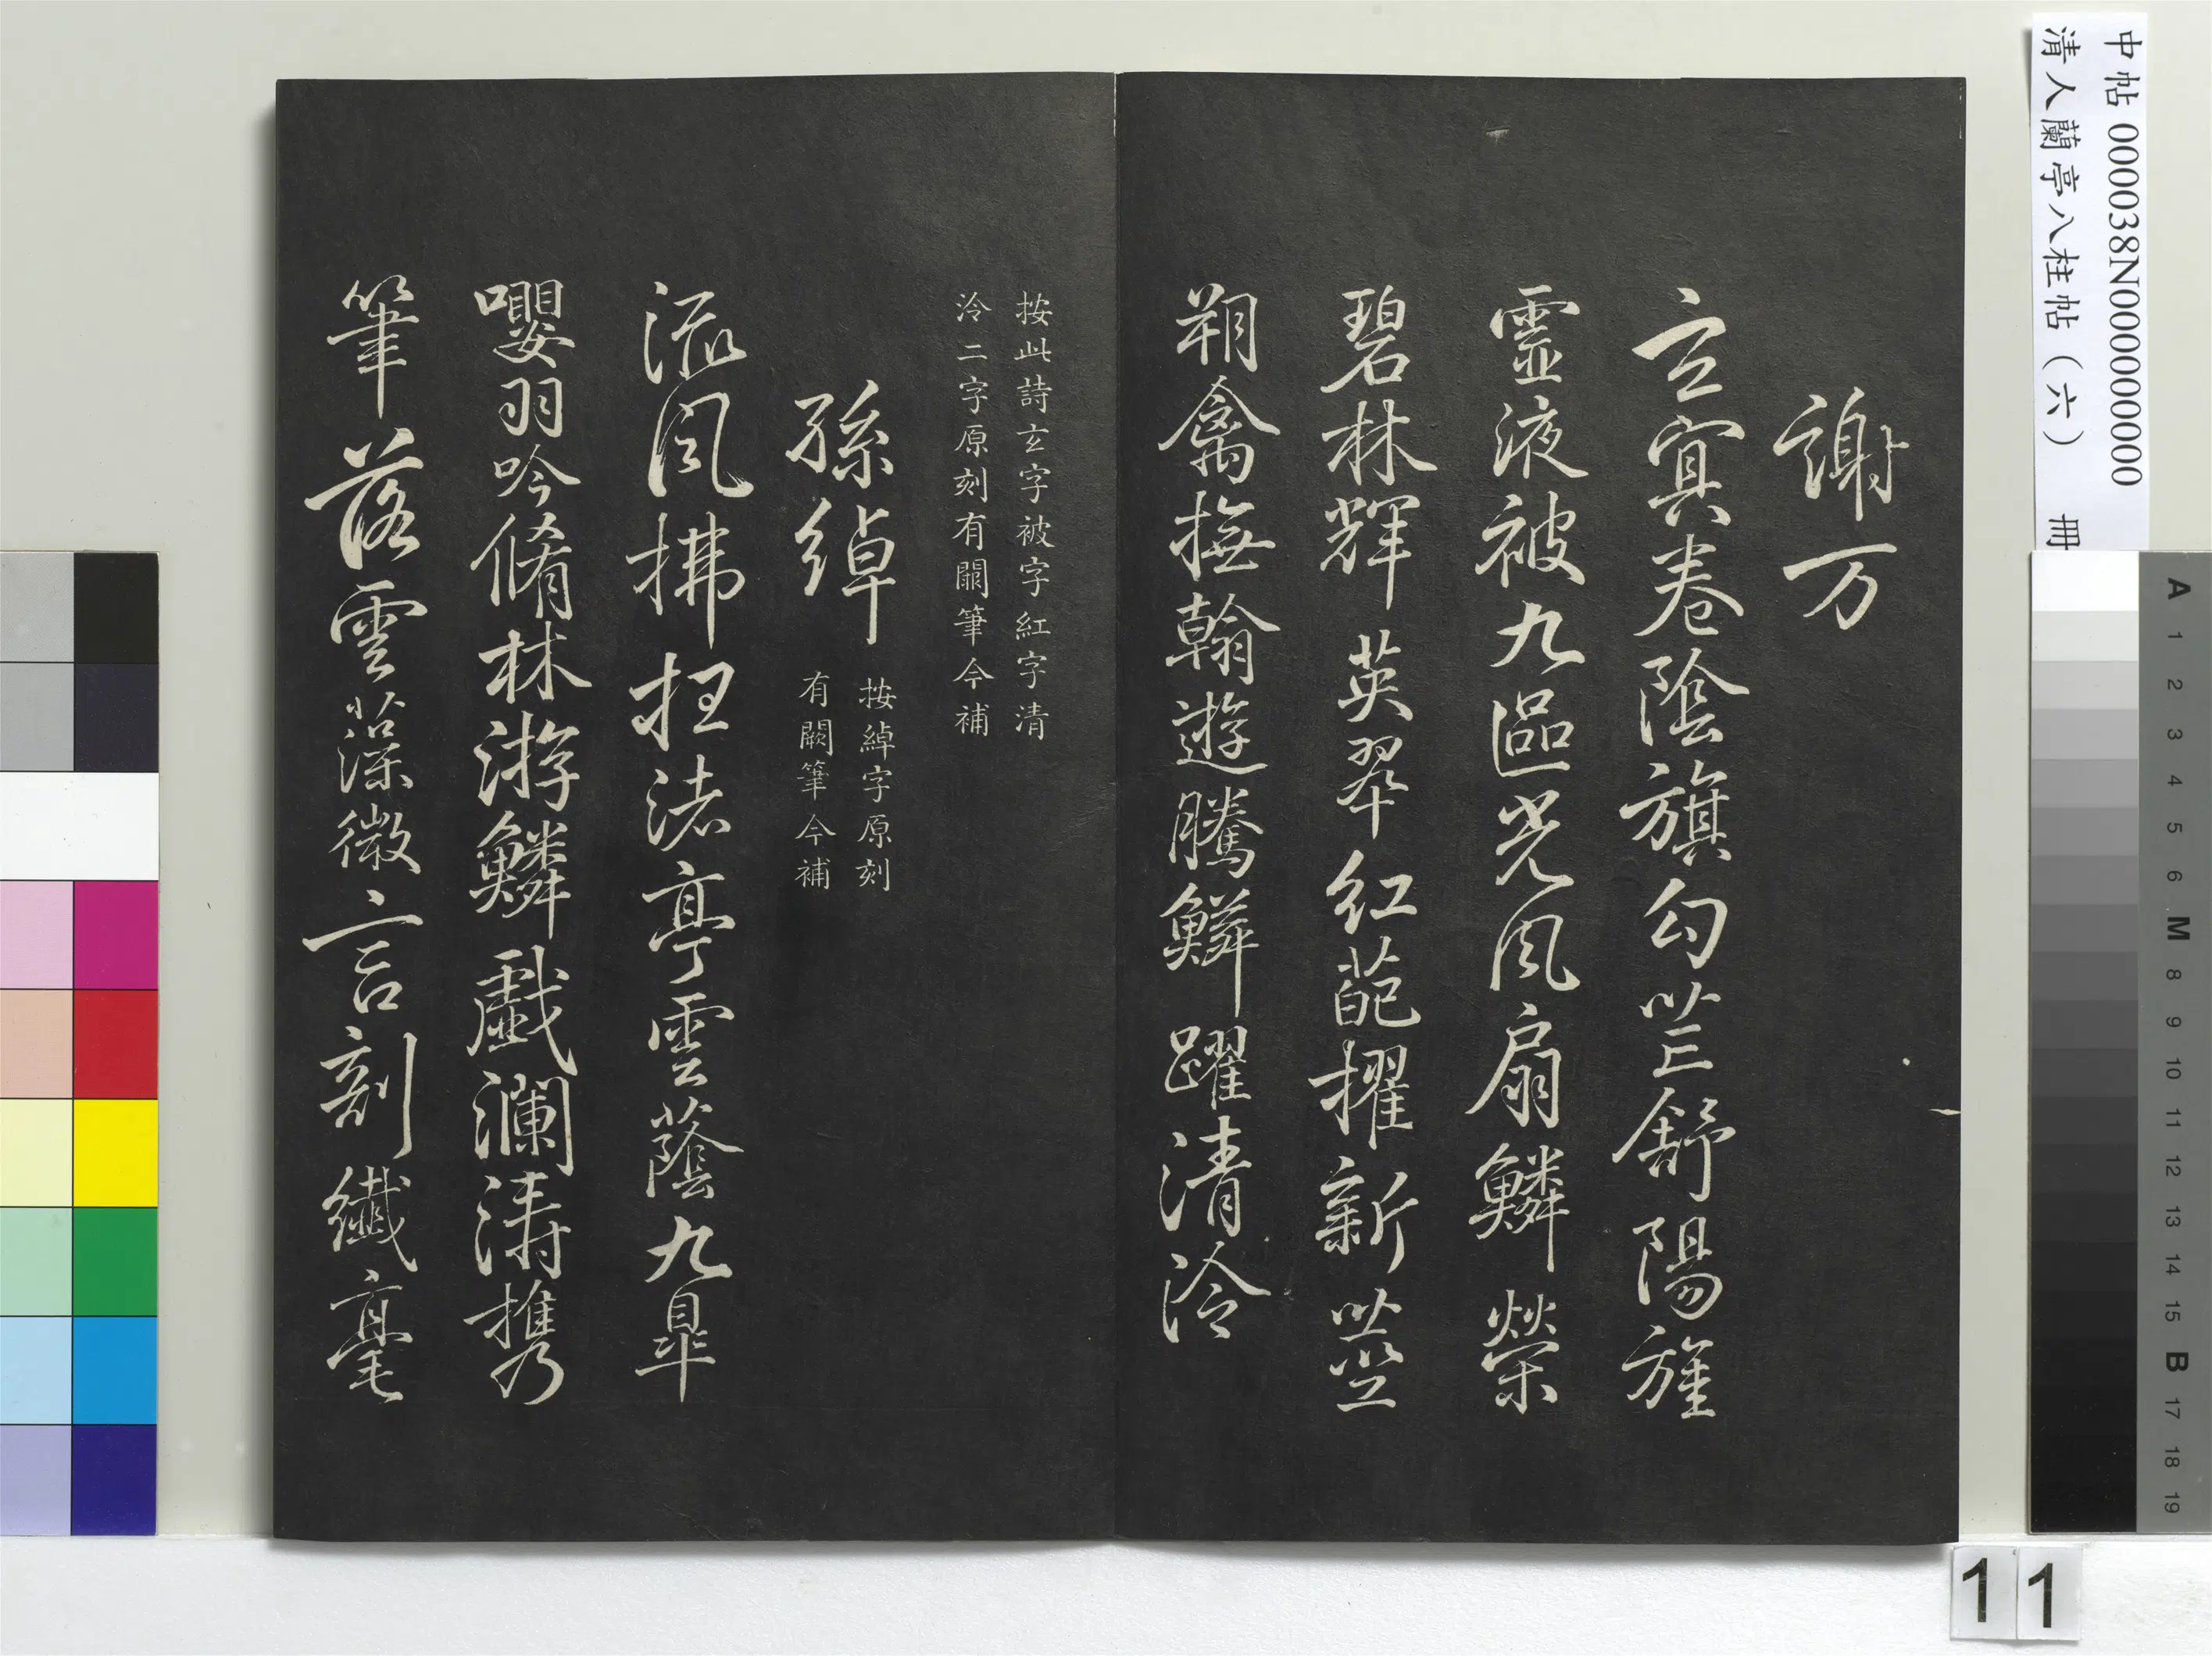 中帖 000038N000000000
清人蘭亭八柱帖(六) 冊
謝万
玄冥卷陰旗勾芒舒陽旌
靈液被九區光風扇鱗榮
碧林輝英翠紅葩擢新莖
翔禽撫翰遊騰鱗躍清泠
按此詩玄字被字紅字清
泠二字原刻有闕筆今補
孫綽
按綽字原刻
有闕筆今補
流風拂枉渚亭雲蔭九皐
嚶羽吟脩林游鱗戲瀾濤攜
筆落雲藻微言剖纖毫
A 1 2 3 4 5 6 M 8 9 10 11 12 13 14 15 B 17 18 19
11